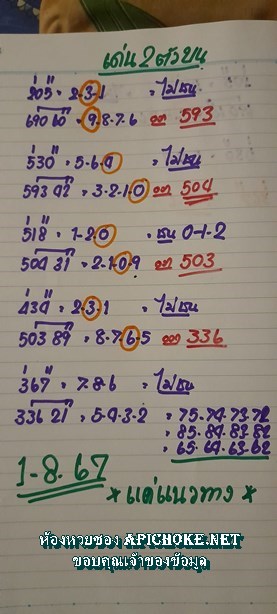 เด่น 2 ตัวบน
205 = 2-3-1 = ไม่ชน
690 60 = 9-8-7-6 ออก 593
530 = 5-6-9 = ไม่ชน
593 42 = 3-2-1-0 ออก 504
518 = 1-2-0 = ชน 0-1-2
504 31 = 2-1-0-9 ออก 503
434 = 2-3-1 = ไม่ชน
503 89 = 8-7-6-5 ออก 336
367 = 7-8-6 = ไม่ชน
336 21 = 5-4-3-2 = 75-74-73-72
= 85-84-83-82
= 65-64-63-62
1-8-67
* แค่แนวทาง *
ห้องหวยซอง APICHOKE.NET
ขอบคุณเจ้าของข้อมูล